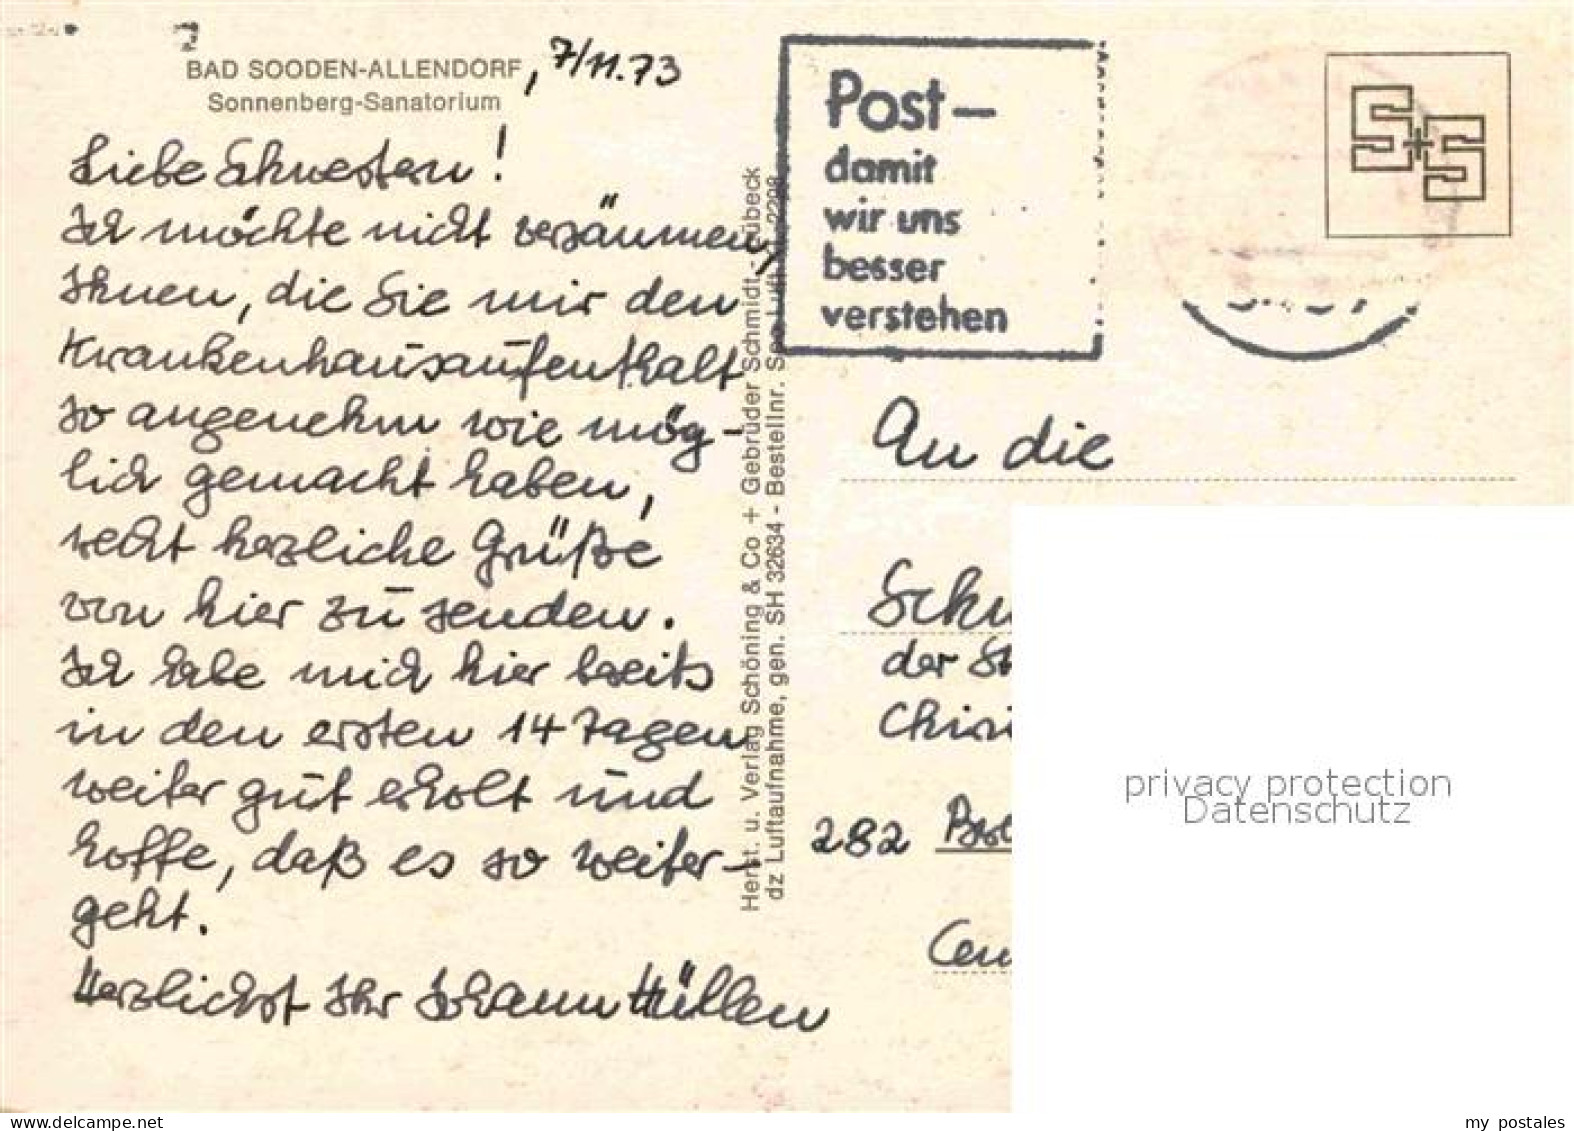 BAD SOODEN-ALLENDORF, 7/11.73
Sonnenberg-Sanatorium
Liebe Schwestern!
Ich möchte nicht versäumen,
Ihnen, die Sie mir den
Krankenhausaufenthalt
so angenehm wie mög-
lich gemacht haben,
recht herzliche Grüße
von hier zu senden.
Ich habe mich hier bereits
in den ersten 14 Tagen
weiter gut erholt und
hoffe, daß es so weiter-
geht.
Herzlichst Ihr Johann Hüllen
Herst. u. Verlag Schöning & Co + Gebrüder Schmidt - Lübeck
dz Luftaufnahme, gen. SH 32634 - Bestellnr.
Post -
damit
wir uns
besser
verstehen
S+S
An die
Schw
der St
Chiru
282
privacy protection
Datenschutz
my postales
www.delcampe.net